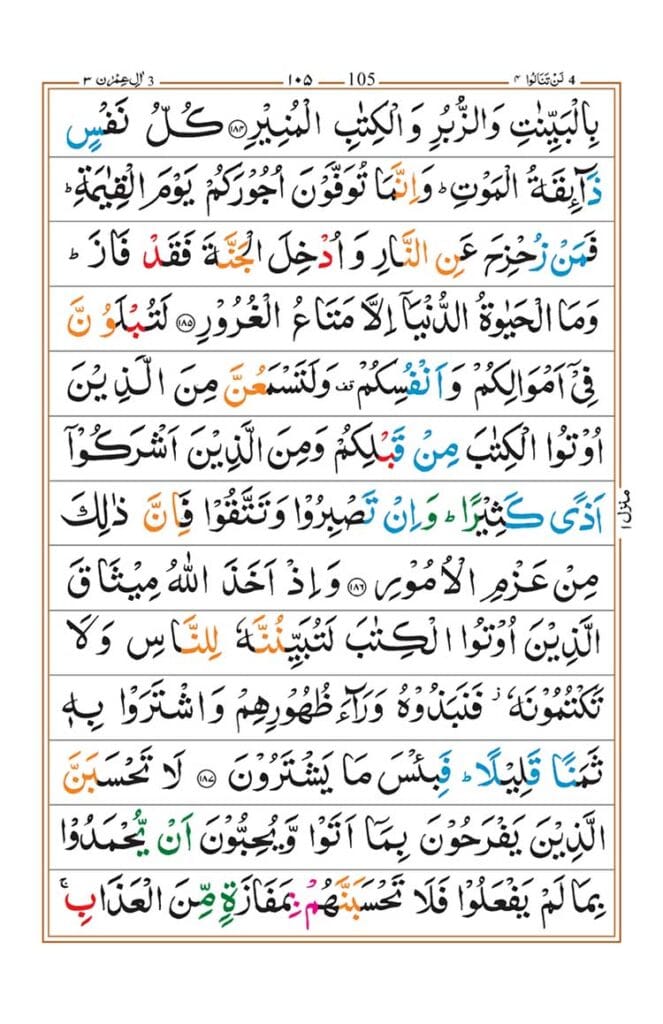 3 اٰلِ عِمْرٰن ٣ ١٠٥ 105 4 لَنْ تَنَالُوا ٤
بِالْبَيِّنٰتِ وَالزُّبُرِ وَالْكِتٰبِ الْمُنِيْرِ ۝١٨٤ كُلُّ نَفْسٍ
ذَآئِقَةُ الْمَوْتِ ؕ وَاِنَّمَا تُوَفَّوْنَ اُجُوْرَكُمْ يَوْمَ الْقِيٰمَةِ ؕ
فَمَنْ زُحْزِحَ عَنِ النَّارِ وَاُدْخِلَ الْجَنَّةَ فَقَدْ فَازَ ؕ
وَمَا الْحَيٰوةُ الدُّنْيَاۤ اِلَّا مَتَاعُ الْغُرُوْرِ ۝١٨٥ لَتُبْلَوُنَّ
فِىْۤ اَمْوَالِكُمْ وَاَنْفُسِكُمْ قف وَلَتَسْمَعُنَّ مِنَ الَّذِيْنَ
اُوْتُوا الْكِتٰبَ مِنْ قَبْلِكُمْ وَمِنَ الَّذِيْنَ اَشْرَكُوْۤا
اَذًى كَثِيْرًا ؕ وَاِنْ تَصْبِرُوْا وَتَتَّقُوْا فَاِنَّ ذٰلِكَ
مِنْ عَزْمِ الْاُمُوْرِ ۝١٨٦ وَاِذْ اَخَذَ اللّٰهُ مِيْثَاقَ
الَّذِيْنَ اُوْتُوا الْكِتٰبَ لَتُبَيِّنُنَّهٗ لِلنَّاسِ وَلَا
تَكْتُمُوْنَهٗ ز فَنَبَذُوْهُ وَرَآءَ ظُهُوْرِهِمْ وَاشْتَرَوْا بِهٖ
ثَمَنًا قَلِيْلًا ؕ فَبِئْسَ مَا يَشْتَرُوْنَ ۝١٨٧ لَا تَحْسَبَنَّ
الَّذِيْنَ يَفْرَحُوْنَ بِمَاۤ اَتَوْا وَّيُحِبُّوْنَ اَنْ يُّحْمَدُوْا
بِمَا لَمْ يَفْعَلُوْا فَلَا تَحْسَبَنَّهُمْ بِمَفَازَةٍ مِّنَ الْعَذَابِ ۚ
منزل ١